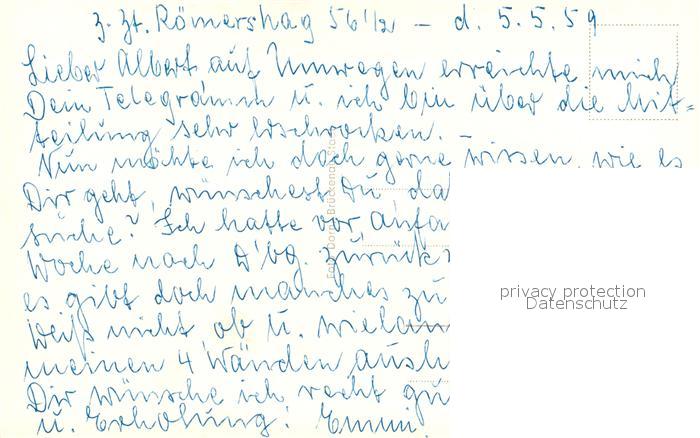 z. Zt. Römershag 56 1/2 – d. 5.5.59
Lieber Albert, auf Umwegen erreichte mich
Dein Telegramm u. ich bin über die Mit=
teilung sehr erschrocken. –
Nun möchte ich doch gerne wissen, wie es
Dir geht, wünschest Du da
suche? Ich hatte vor, Anfa
Woche nach D'bg. zurück
es gibt doch manches zu
weiß nicht, ob u. wie
meinen 4 Wänden aush
Dir wünsche ich recht gu
u. Erholung! Emmi.
privacy protection
Datenschutz